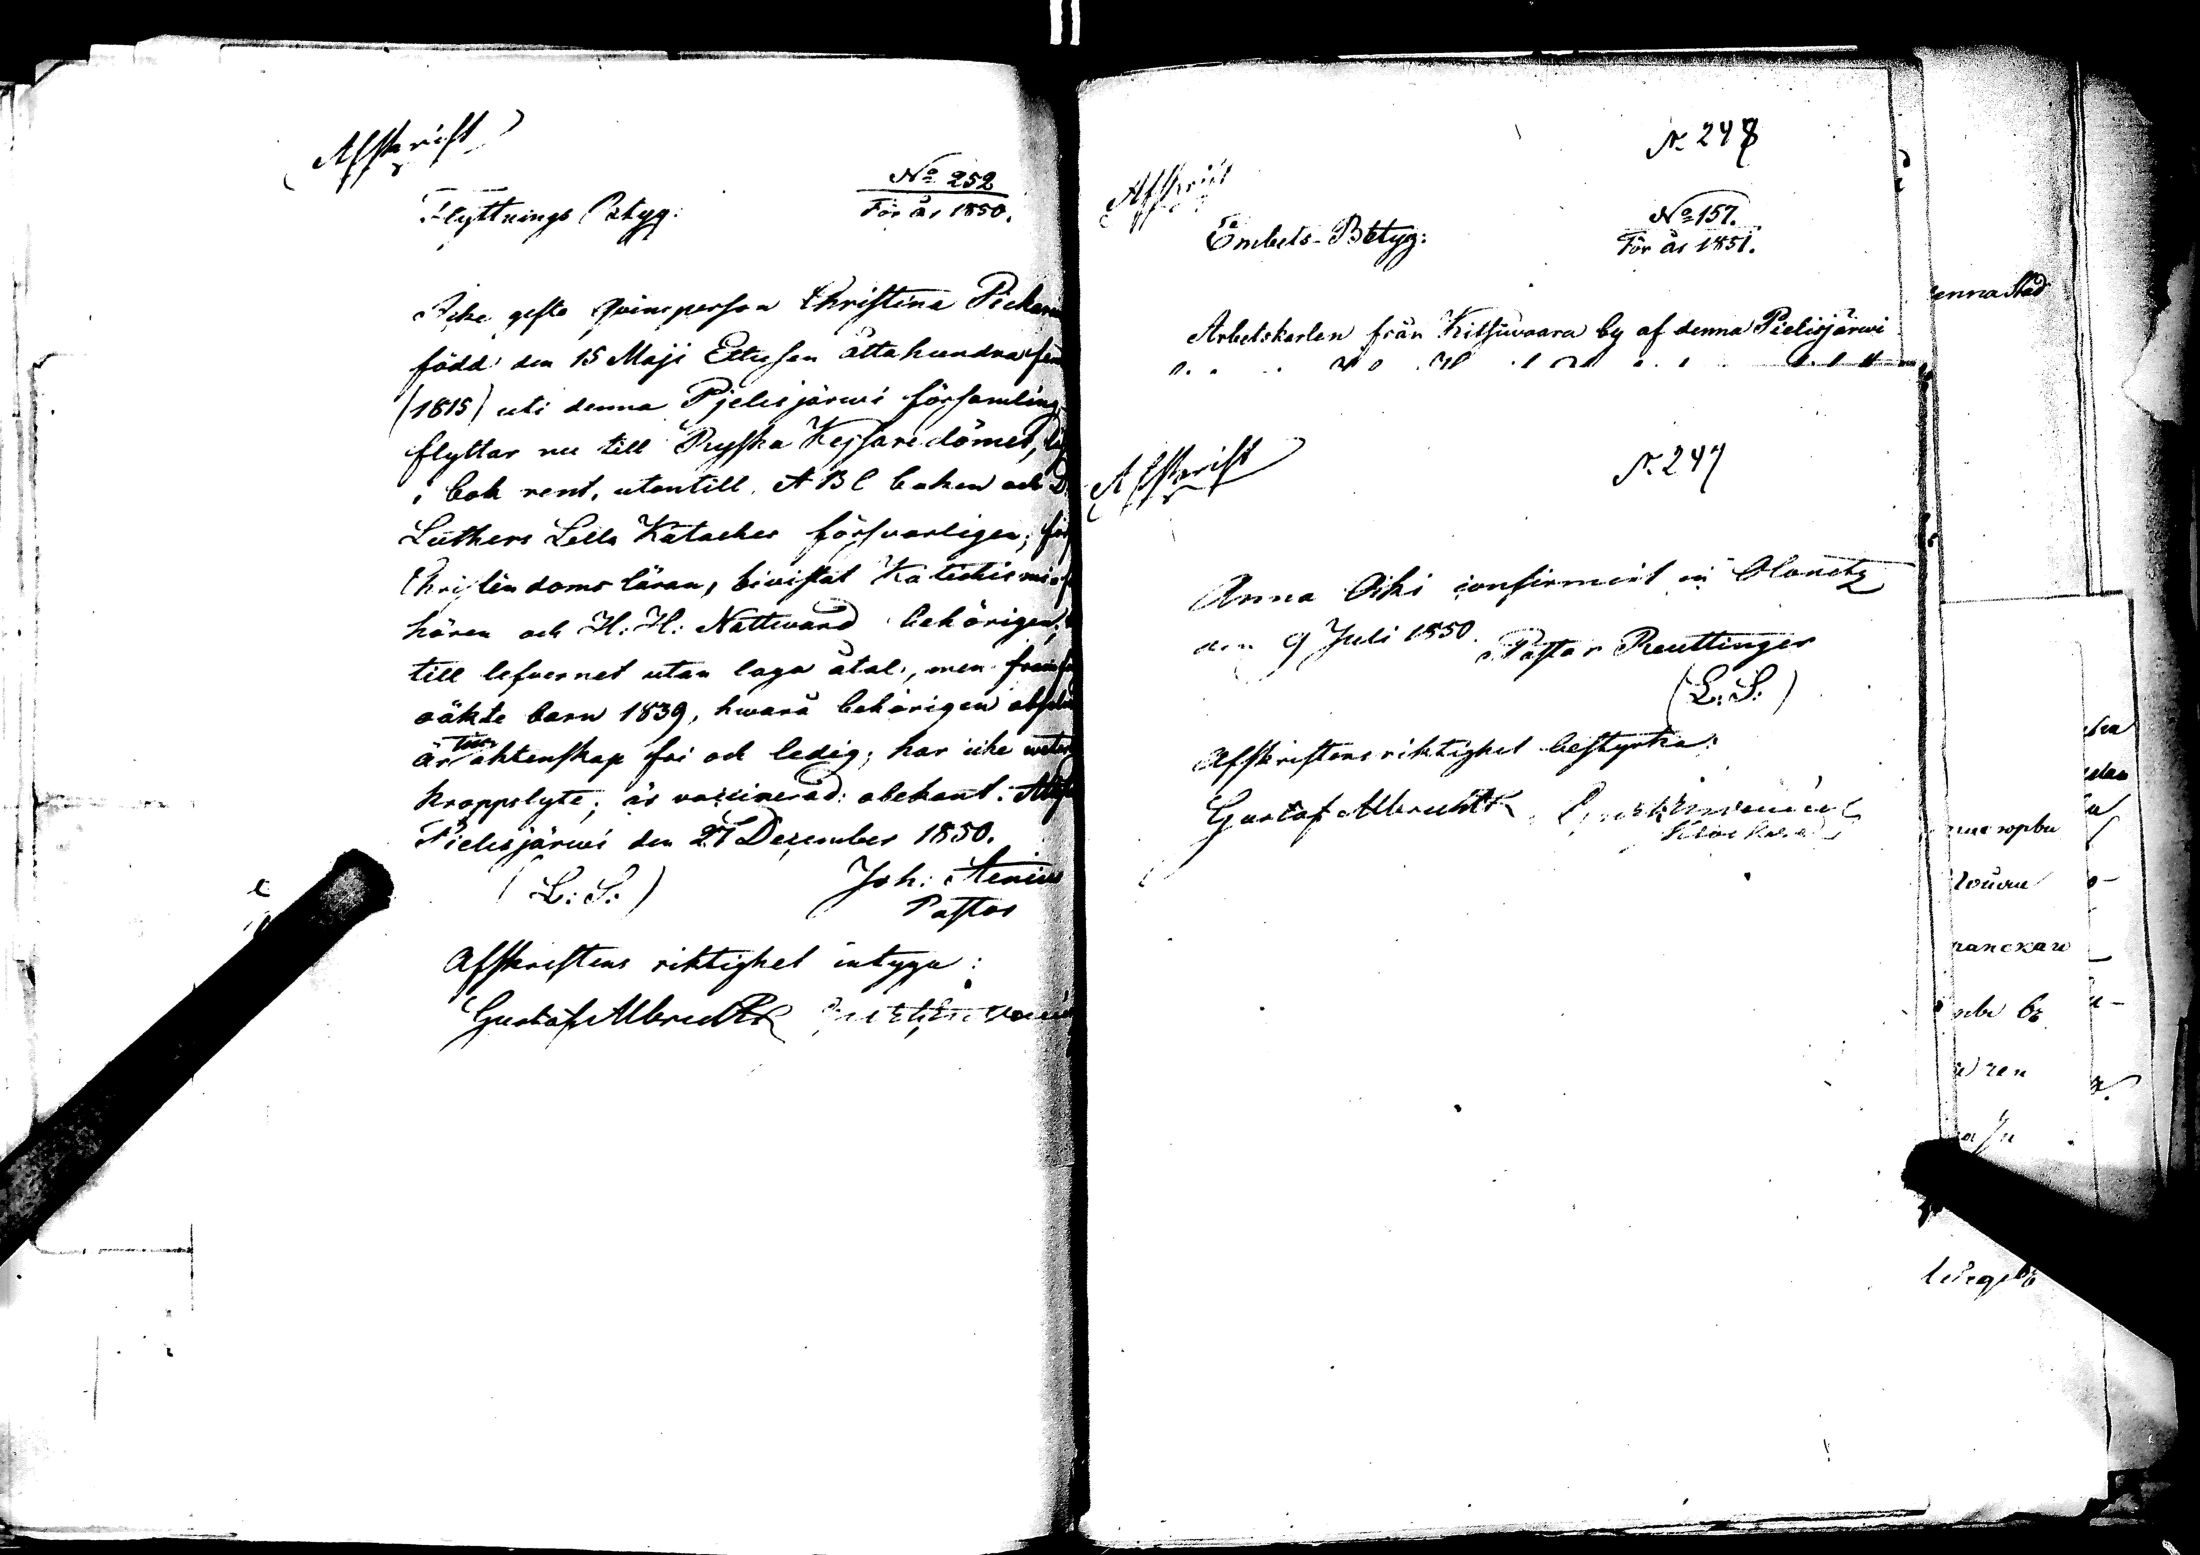 Afskrift
No 252
För år 1850.
Flyttnings Betyg:
Icke gifte qvinsperson Christina
född den 15 Maji Ettusen åttahundra fem
(1815) uti denna Pjelisjärwi församling
flyttar nu till Ryska Kejsaredömet,
i bok rent, utantill ABC boken och D
Luthers Lilla Kateches försvarligen,
Christendoms läran, bivistat
hören och H: H: Nattward behörigen;
till lefvernet utan laga åtal, men
oäkte barn 1839, hwarå behörigen
är till äktenskap fri och ledig; har icke
kroppslyte; är vaccinerad: obekant:
Pielisjärwi den 27 December 1850.
(L: S:) Joh: Stenius
Pastor
Afskriftens riktighet intyga:
Gustaf Albrecht
N. 248
Afskrift
No 157.
För år 1851.
Embets-Betyg:
Arbetskarlen från Kitsiwaara by af denna Pielisjärwi
N. 247
Afskrift
Anna Oiki confirmirt in Olonetz
den 9 Juli 1850. Pastor Reuttinger
(L: S:)
Afskriftens riktighet bestyrka:
Gustaf Albrecht
enna Stad